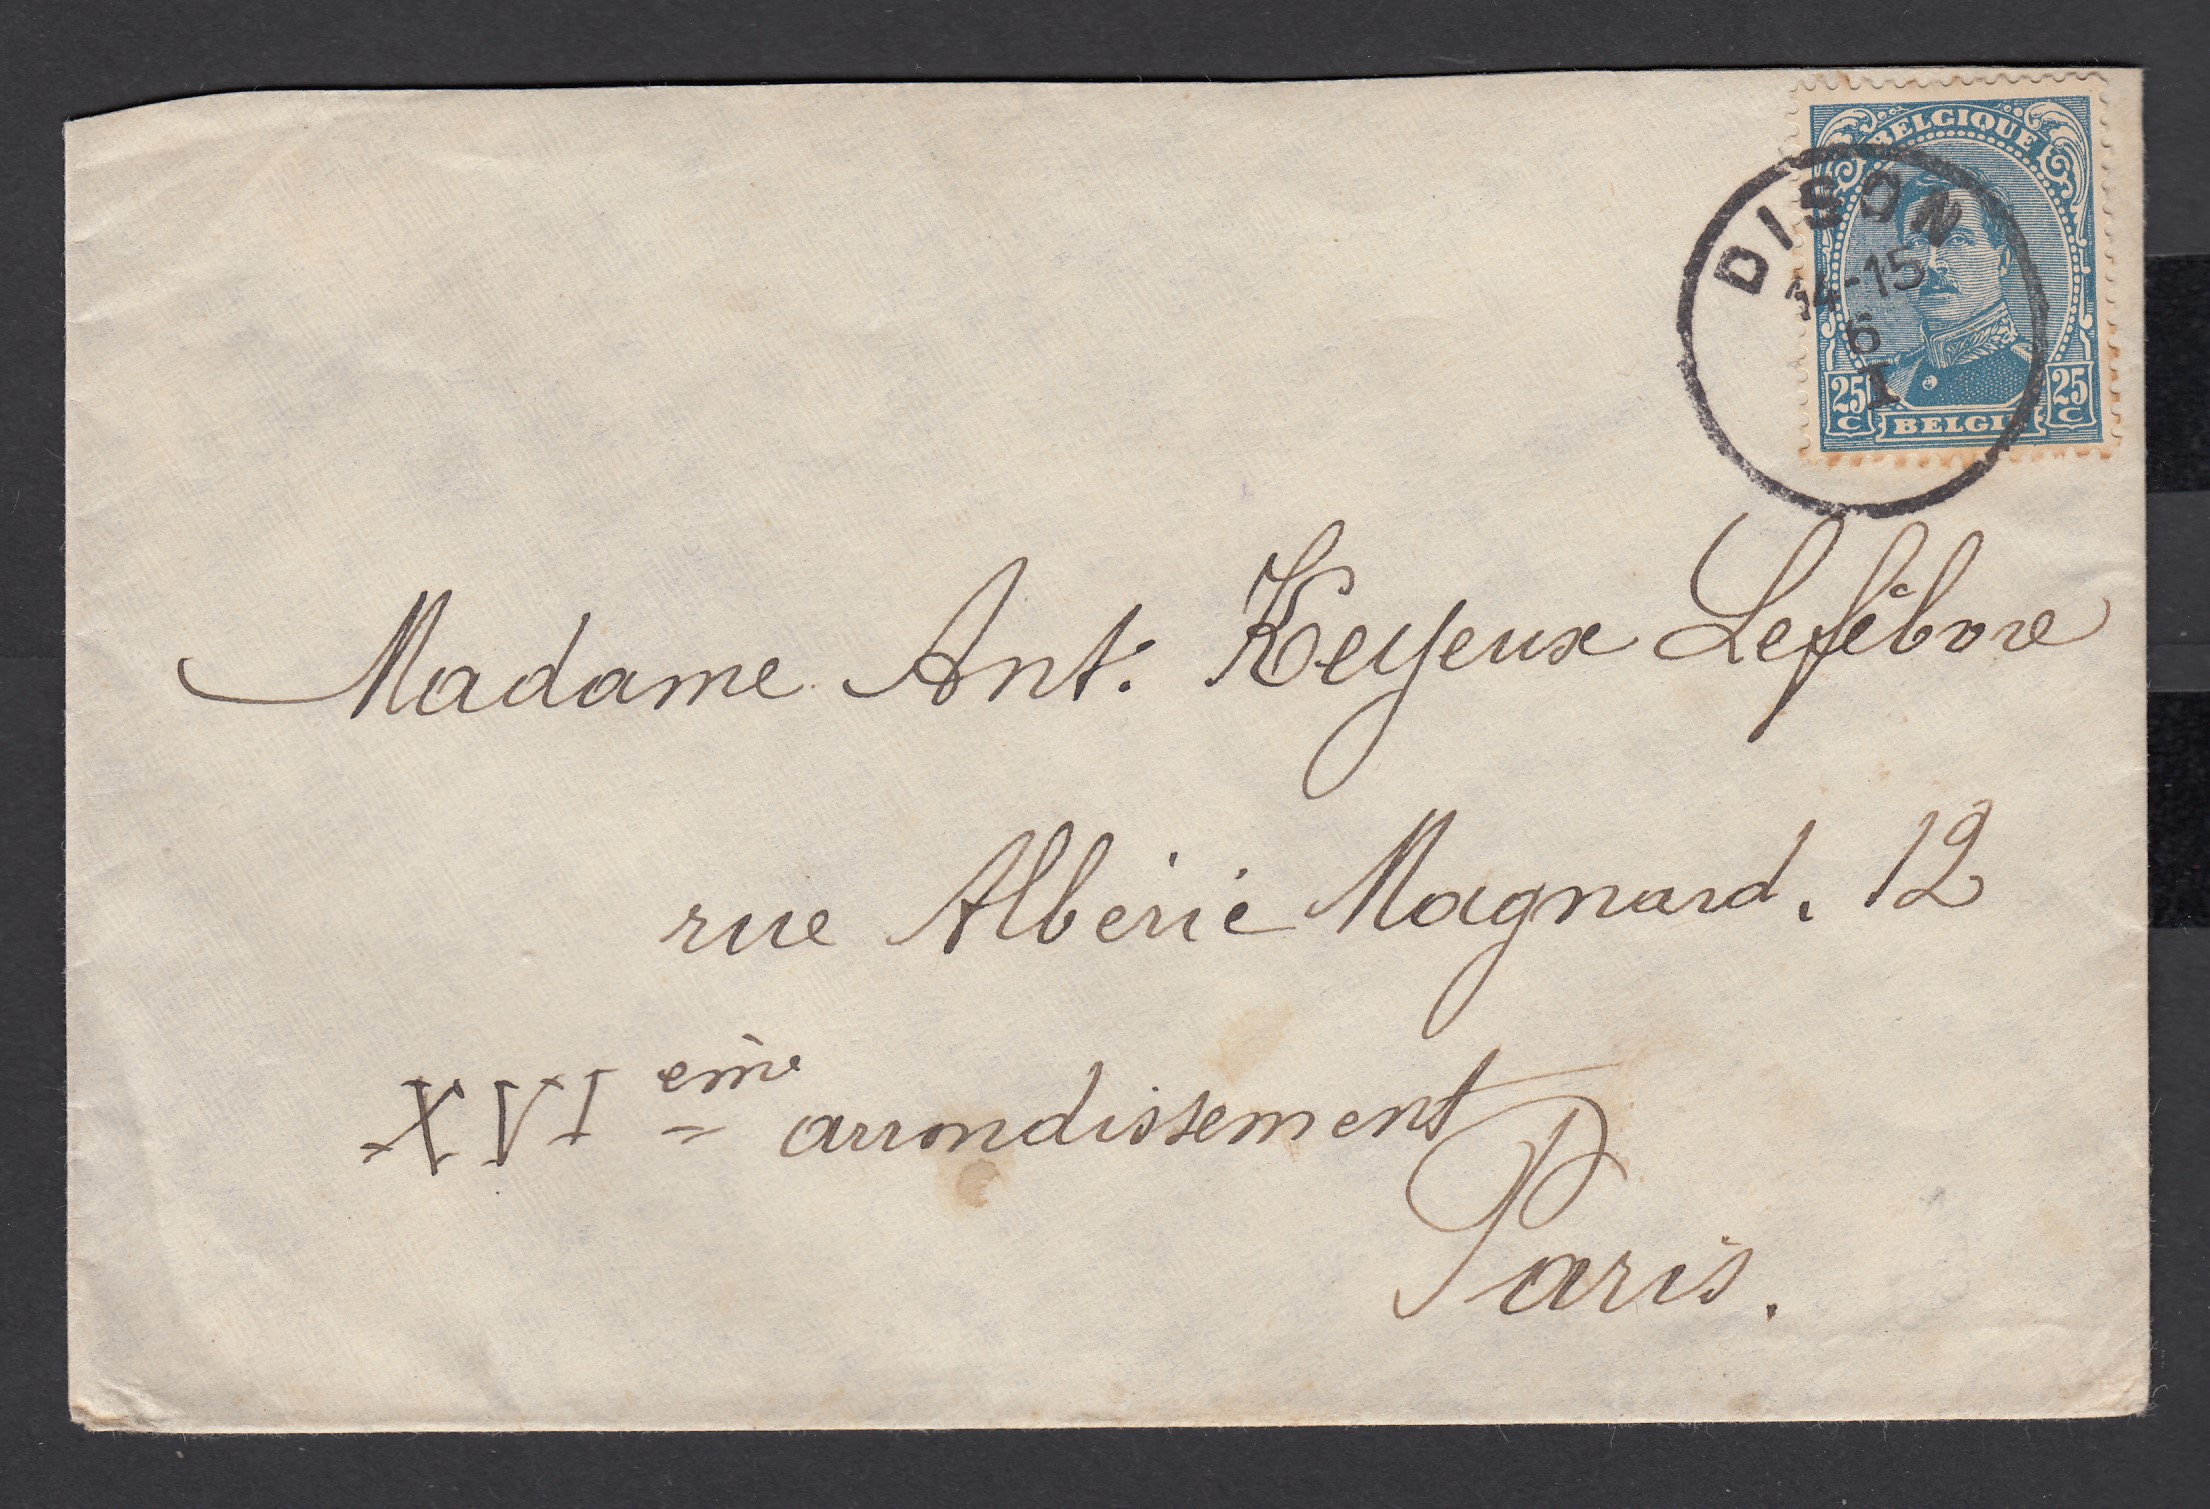 BELGIQUE
DISON
14-15
6
I
25 C BELGIË 25 C
Madame Ant. Heyeux Lefèbvre
rue Albéric Magnard. 12
XVI ème arrondissement
Paris.